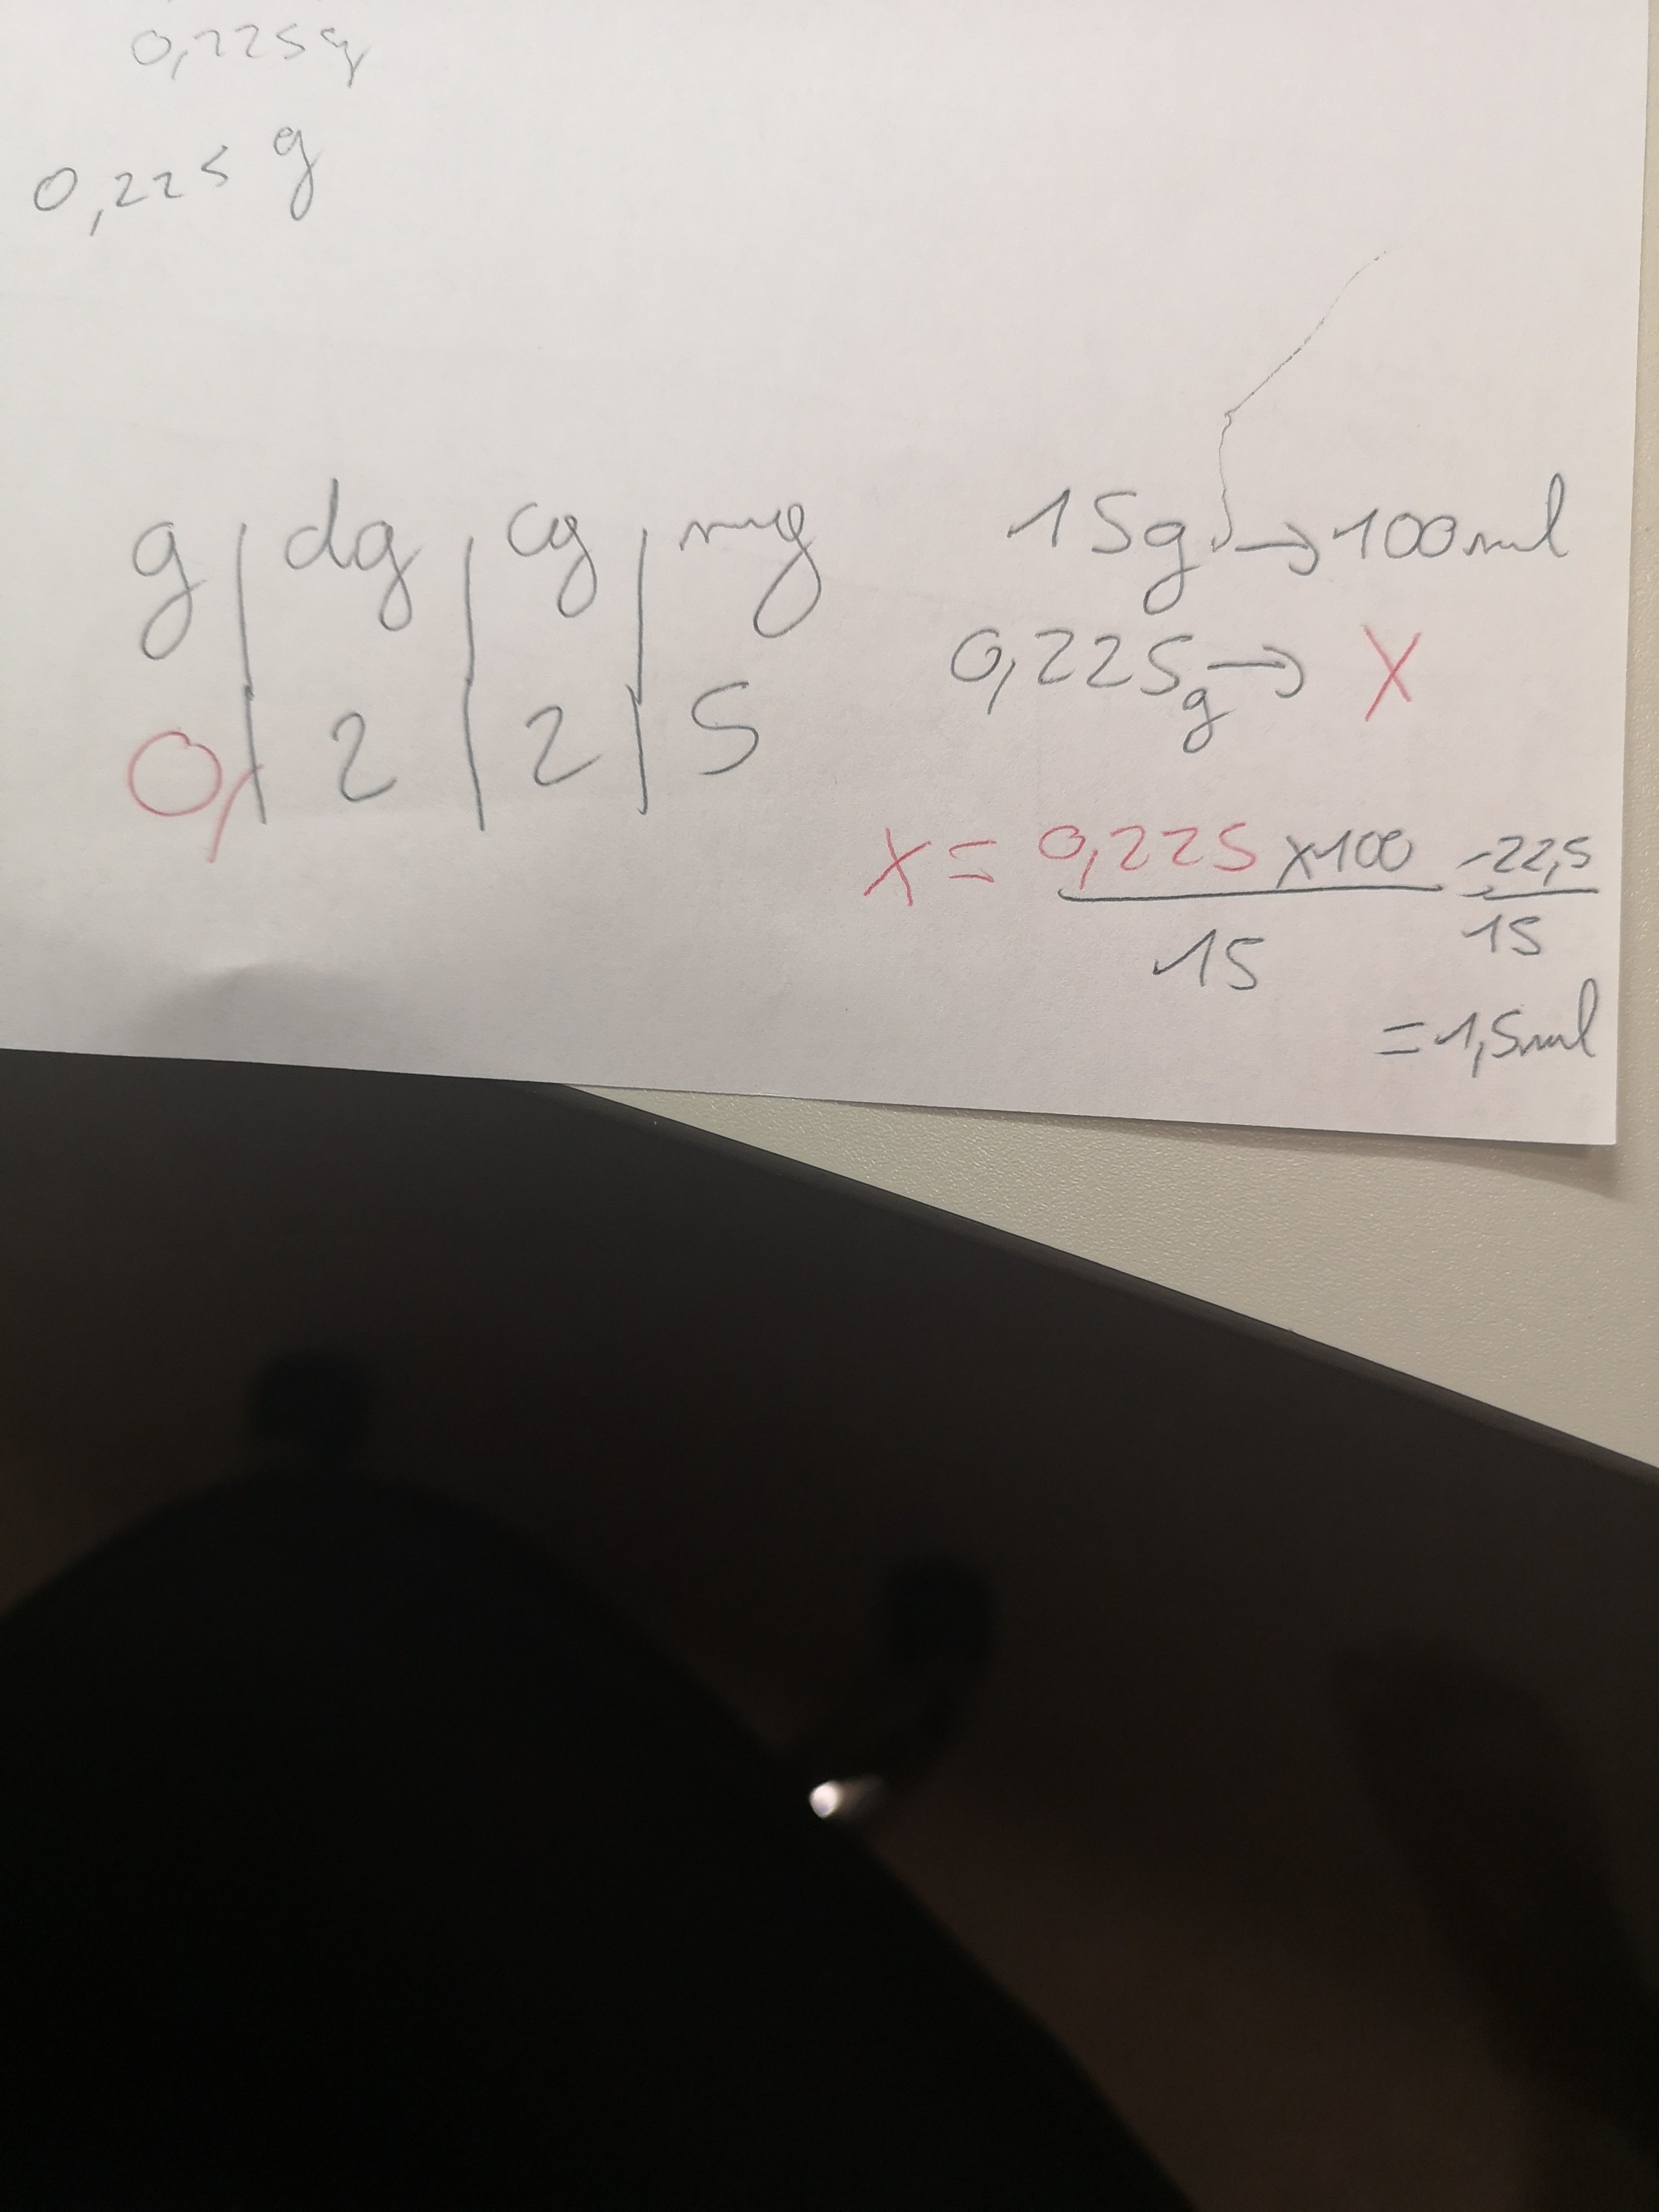 0,225g
0,225 g
g | dg | cg | mg
0, | 2 | 2 | 5
15g → 100ml
0,225g → X
X = 0,225 x100 = 22,5
15 15
= 1,5ml